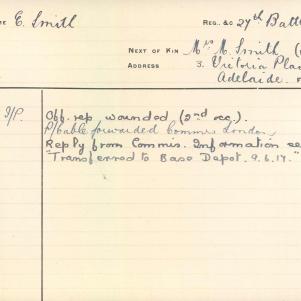 E. Smith REG. &C 27th Batt
NEXT OF KIN Mrs M. Smith
ADDRESS 3, Victoria Plac
Adelaide
Off. rep. wounded (2nd occ.).
forwarded Commis London,
Reply from Commis. Information
Transferred to Base Depot. 9.6.17."